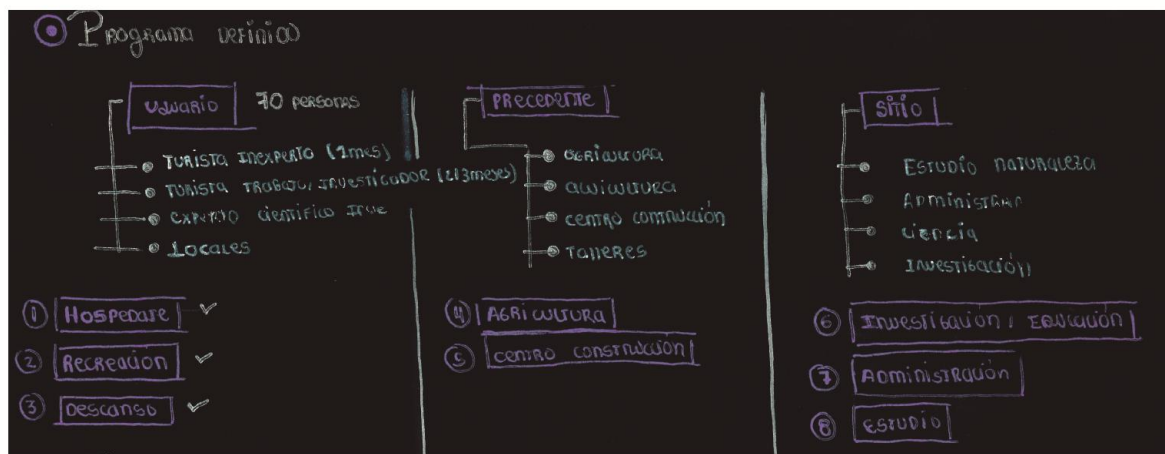 Programa definido
Usuario 70 personas
Turista inexperto (1mes)
Turista trabajo, investigador (2/3meses)
Experto científico
Locales
① Hospedaje ✓
② Recreacion ✓
③ Descanso ✓
Precedente
Agricultura
Centro construcción
Talleres
④ Agricultura
⑤ Centro construcción
Sitio
Estudio naturaleza
Administrar
Ciencia
Investigación
⑥ Investigación, Educación
⑦ Administración
⑧ Estudio